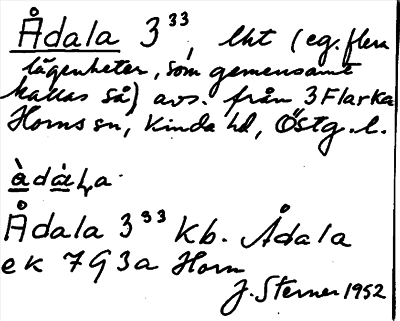 Ådala 3³³, lht (eg. flera
lägenheter, som gemensamt
kallas så) avs. från 3 Flarka
Horns sn, Kinda hd, Östg. l.
Ådala 3³³ kb. Ådala
ek 7G3a Horn
J. Sterner 1952